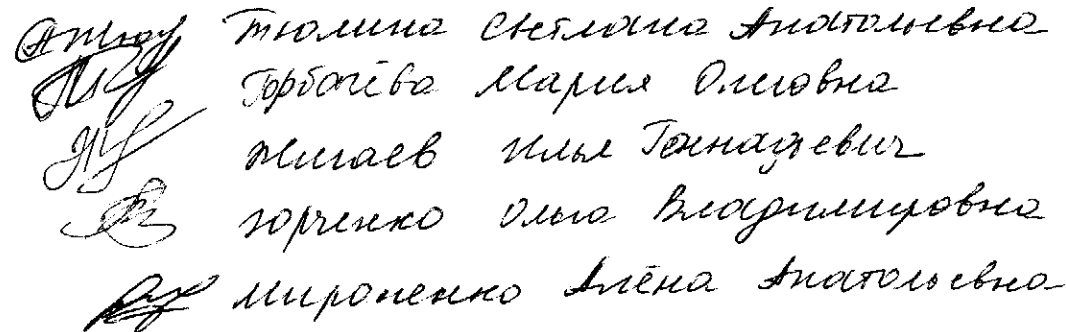 Тюлина Светлана Анатольевна
Горбачёва Мария Олеговна
Жигаев Илья Геннадьевич
Юрченко Ольга Владимировна
Мироненко Алёна Анатольевна